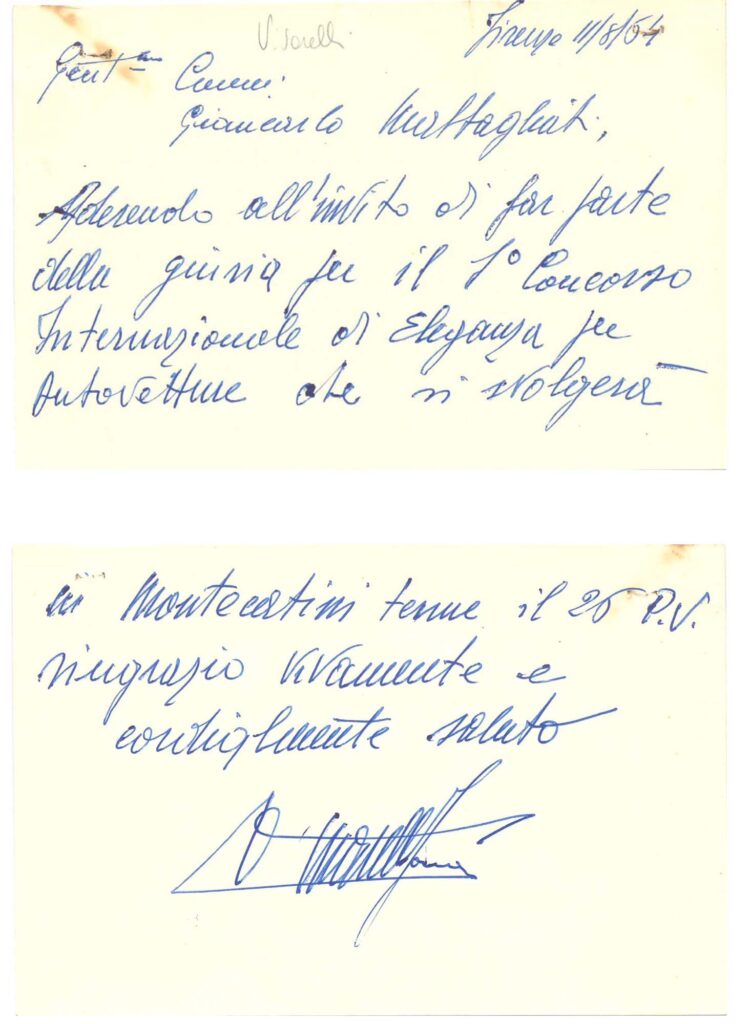 V. Sorelli
Firenze 11/8/54
Gent.mo
Giancarlo
Aderendo all'invito di far parte
della giuria per il 1° Concorso
Internazionale di Eleganza per
Autovetture che si svolgerà
in Montecatini terme il 26 P.V.
ringrazio vivamente e
cordialmente saluto